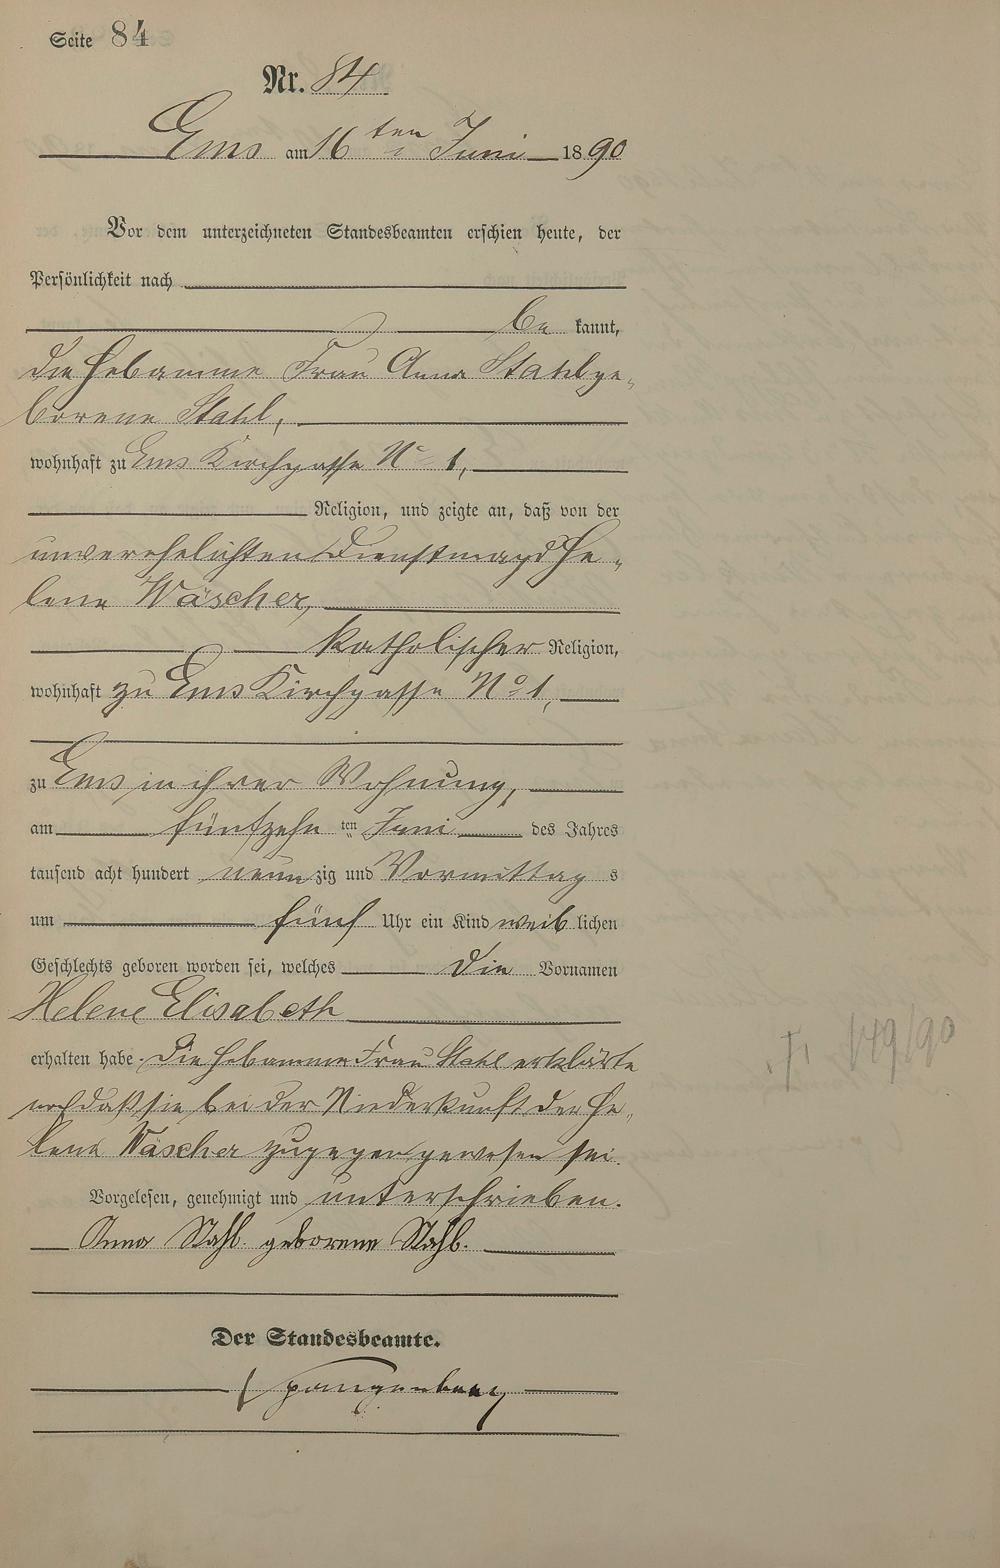 Seite 84
Nr. 84
Ems am 16ten Juni 1890
Vor dem unterzeichneten Standesbeamten erschien heute, der
Persönlichkeit nach
be kannt,
die Hebamme Frau Anna Stahl ge-
borene Stahl,
wohnhaft zu Ems Kirchgasse No 1,
Religion, und zeigte an, daß von der
unverehelichten Dienstmagd He-
lene Wäscher,
katholischer Religion,
wohnhaft zu Ems Kirchgasse No 1,
zu Ems in ihrer Wohnung,
am fünfzehn ten Juni des Jahres
tausend acht hundert neunzig und Vormittag s
um fünf Uhr ein Kind weiblichen
Geschlechts geboren worden sei, welches die Vornamen
Helene Elisabeth
erhalten habe. Die Hebamme Frau Stahl erklärte
noch daß sie bei der Niederkunft der He-
lene Wäscher zugegen gewesen sei.
Vorgelesen, genehmigt und unterschrieben.
Anna Stahl geborene Stahl.
Der Standesbeamte.
Spangenberg
† 149/90